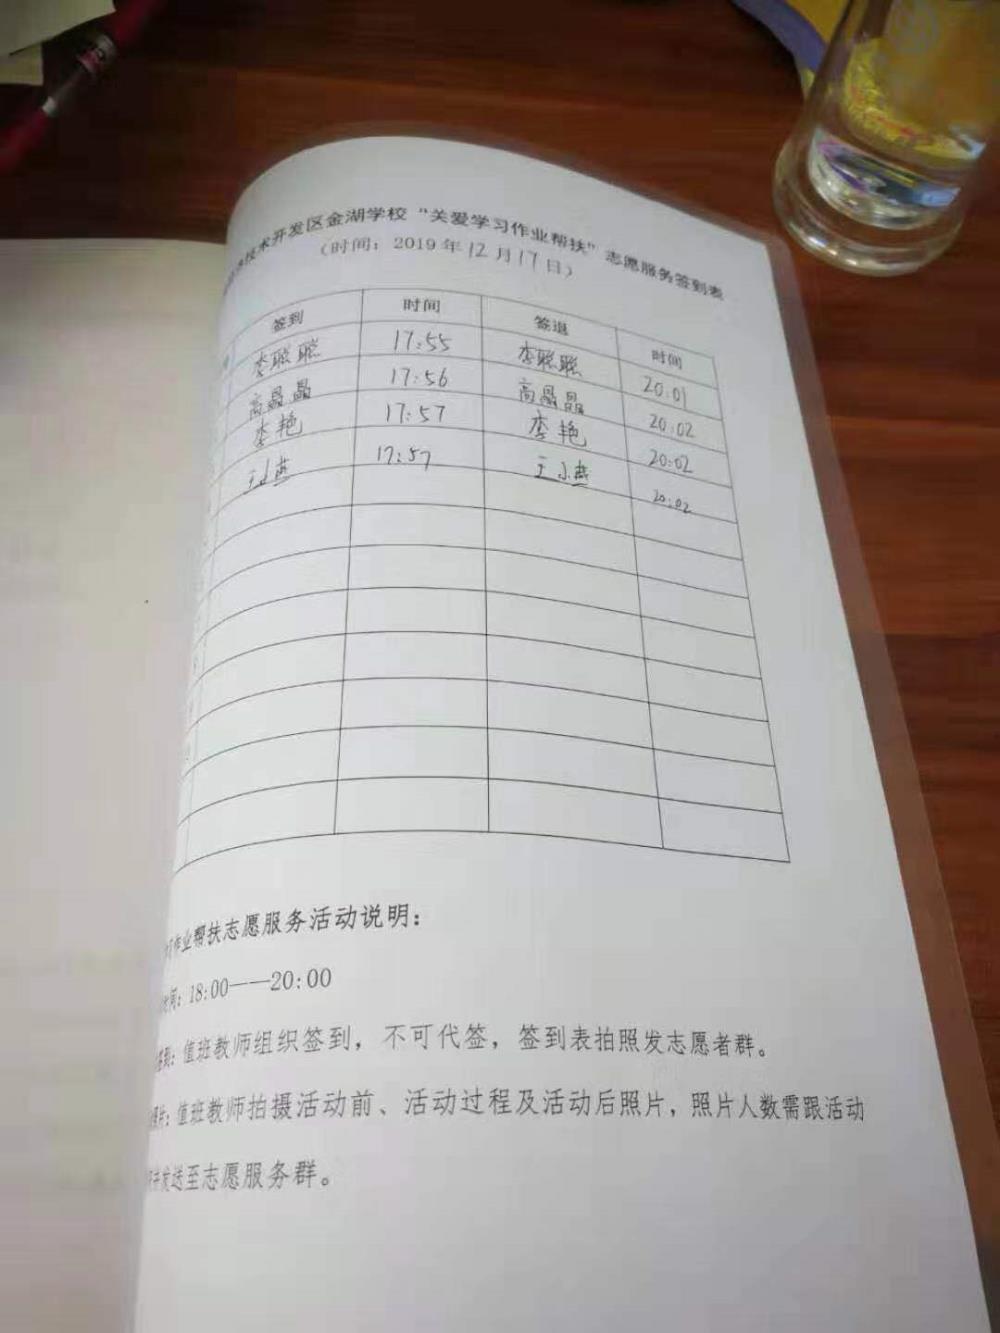 技术开发区金湖学校“关爱学习作业帮扶”志愿服务签到表
（时间：2019年12月17日）
签到 时间 签退 时间
李聪聪 17:55 李聪聪 20:01
高晶晶 17:56 高晶晶 20:02
李艳 17:57 李艳 20:02
王小燕 17:57 王小燕 20:02
习作业帮扶志愿服务活动说明：
时间：18:00——20:00
签到：值班教师组织签到，不可代签，签到表拍照发志愿者群。
照片：值班教师拍摄活动前、活动过程及活动后照片，照片人数需跟活动
并发送至志愿服务群。